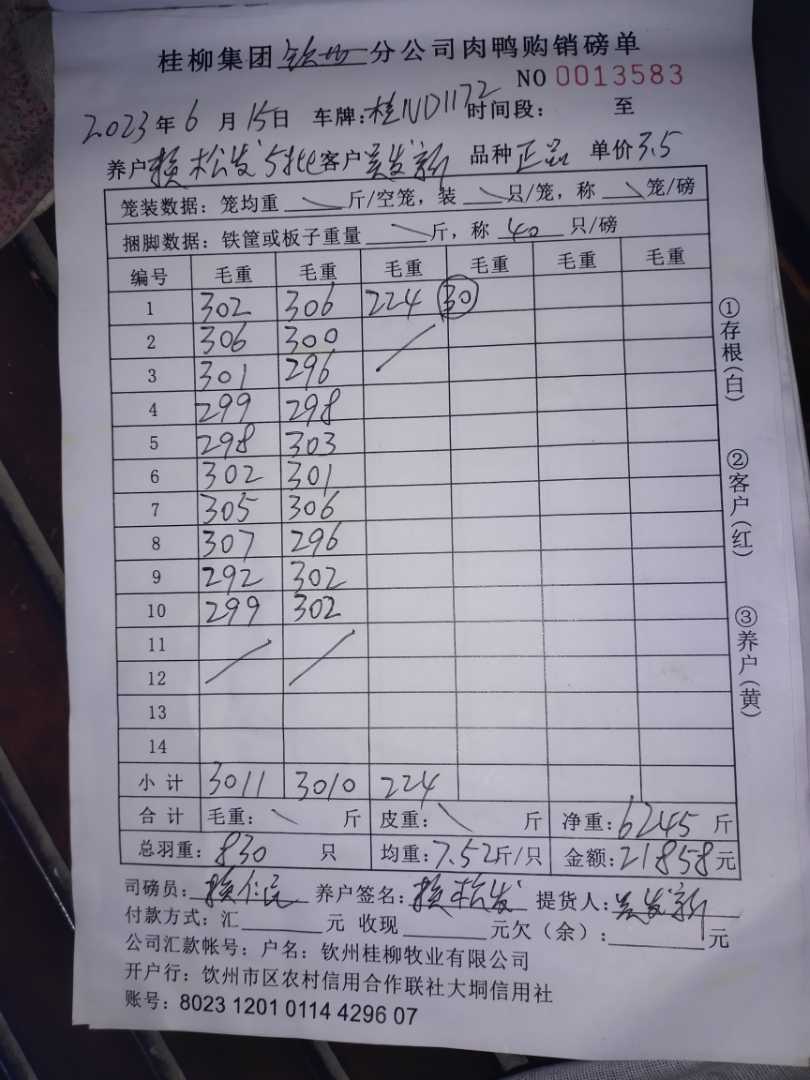 桂柳集团钦州分公司肉鸭购销磅单
NO 0013583
2023年6月15日 车牌:桂ND1172 时间段: 至
养户赖松发5批 客户吴发新 品种正品 单价3.5
笼装数据: 笼均重 \ 斤/空笼, 装 \ 只/笼, 称 \ 笼/磅
捆脚数据: 铁筐或板子重量 \ 斤, 称 40 只/磅
编号 毛重 毛重 毛重 毛重 毛重 毛重
1 302 306 224 30
2 306 300
3 301 296
4 299 298
5 298 303
6 302 301
7 305 306
8 307 296
9 292 302
10 299 302
11
12
13
14
小计 3011 3010 224
合计 毛重: \ 斤 皮重: \ 斤 净重: 6245 斤
总羽重: 830 只 均重: 7.52斤/只 金额: 21858元
司磅员: 赖仁民 养户签名: 赖松发 提货人: 吴发新
付款方式: 汇 元 收现 元欠(余): 元
公司汇款帐号: 户名: 钦州桂柳牧业有限公司
开户行: 钦州市区农村信用合作联社大垌信用社
账号: 8023 1201 0114 4296 07
①存根(白)
②客户(红)
③养户(黄)